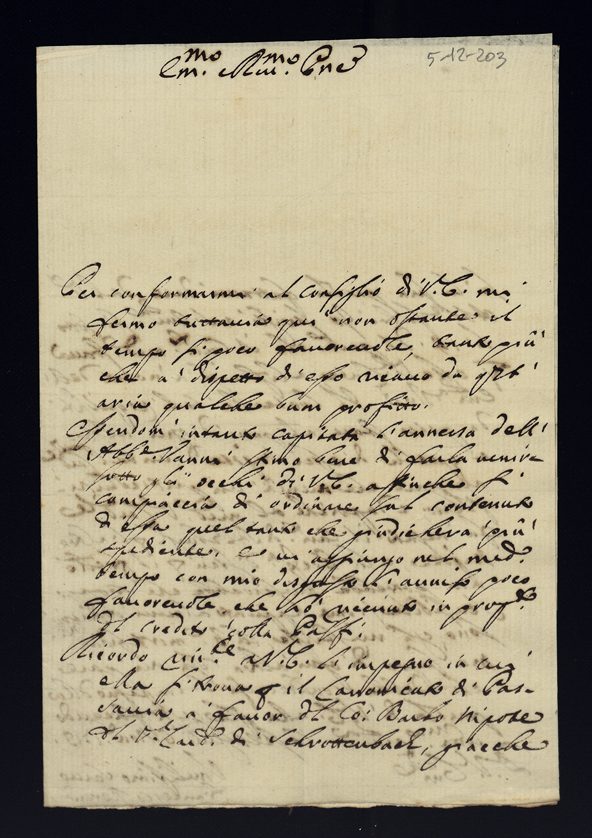 5-12-203
Em.mo Rev.mo Pne
Per conformarmi al consiglio di V.E. mi
fermo tuttavia qui non ostante il
tempo sì poco favorevole, tanto più
che a' dispetto di esso ricavo da
aria qualche buon profitto.
Essendomi intanto capitata l'annessa dell'
Abb.e Vanni stimo bene di farla venire
sotto gli occhi di V.E. affinche si
compiaccia di ordinare sul contenuto
di essa quel tanto che giudicherà più
spediente. E m'aggiungo nel med.o
tempo con mio l'avviso poco
favorevole che hò ricevuto in
del credito colla
Ricordo a V.E. l'impegno in cui
ella si trova p il Canonicato di Pas-
savia a' favor del Co: Barbo Nipote
del Card. di Schrottenbach, giacche